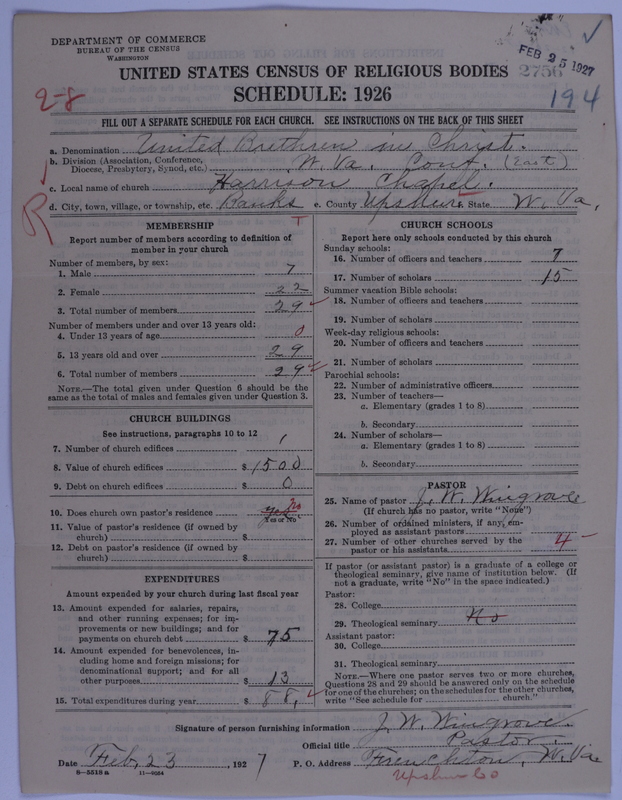 DEPARTMENT OF COMMERCE
BUREAU OF THE CENSUS
WASHINGTON
FEB 25 1927
2756
194
2-8
UNITED STATES CENSUS OF RELIGIOUS BODIES
SCHEDULE: 1926
FILL OUT A SEPARATE SCHEDULE FOR EACH CHURCH. SEE INSTRUCTIONS ON THE BACK OF THIS SHEET
a. Denomination United Brethren in Christ.
b. Division (Association, Conference, Diocese, Presbytery, Synod, etc.) W. Va. Conf. (East)
c. Local name of church Harrison Chapel.
d. City, town, village, or township, etc. Banks e. County Upshur f. State W. Va.
R
MEMBERSHIP
Report number of members according to definition of
member in your church
Number of members, by sex:
1. Male 7
2. Female 22
3. Total number of members 29
Number of members under and over 13 years old:
4. Under 13 years of age 0
5. 13 years old and over 29
6. Total number of members 29
NOTE.—The total given under Question 6 should be the
same as the total of males and females given under Question 3.
CHURCH BUILDINGS
See instructions, paragraphs 10 to 12
7. Number of church edifices 1
8. Value of church edifices $1500
9. Debt on church edifices $ 0
10. Does church own pastor's residence yes no
Yes or No
11. Value of pastor's residence (if owned by
church) $
12. Debt on pastor's residence (if owned by
church) $
EXPENDITURES
Amount expended by your church during last fiscal year
13. Amount expended for salaries, repairs,
and other running expenses; for im-
provements or new buildings; and for
payments on church debt $ 75
14. Amount expended for benevolences, in-
cluding home and foreign missions; for
denominational support; and for all
other purposes $ 13
15. Total expenditures during year $ 88,
CHURCH SCHOOLS
Report here only schools conducted by this church
Sunday schools:
16. Number of officers and teachers 7
17. Number of scholars 15
Summer vacation Bible schools:
18. Number of officers and teachers
19. Number of scholars
Week-day religious schools:
20. Number of officers and teachers
21. Number of scholars
Parochial schools:
22. Number of administrative officers
23. Number of teachers—
a. Elementary (grades 1 to 8)
b. Secondary
24. Number of scholars—
a. Elementary (grades 1 to 8)
b. Secondary
PASTOR
25. Name of pastor J. W. Wingrove
(If church has no pastor, write "None")
26. Number of ordained ministers, if any, em-
ployed as assistant pastors
27. Number of other churches served by the
pastor or his assistants 4
If pastor (or assistant pastor) is a graduate of a college or
theological seminary, give name of institution below. (If
not a graduate, write "No" in the space indicated.)
Pastor:
28. College
29. Theological seminary No
Assistant pastor:
30. College
31. Theological seminary
NOTE.—Where one pastor serves two or more churches,
Questions 28 and 29 should be answered only on the schedule
for one of the churches; on the schedules for the other churches,
write "See schedule for church."
Signature of person furnishing information J. W. Wingrove
Official title Pastor.
Date Feb, 23, 1927 P. O. Address Frenchton, W. Va
8-5518a 11-9054
Upshur Co